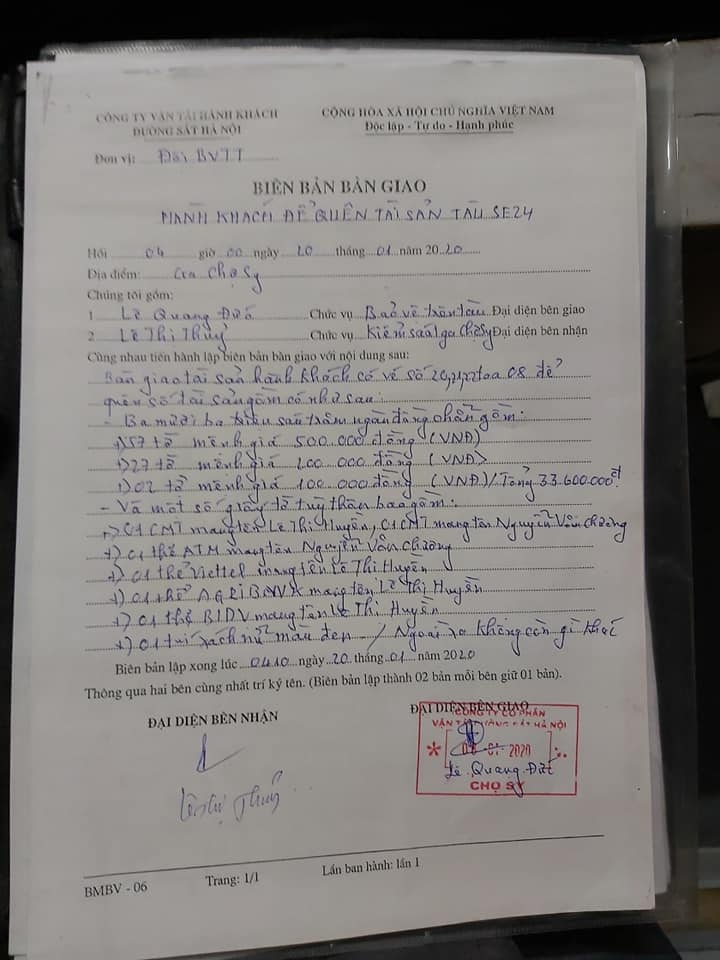 CÔNG TY VẬN TẢI HÀNH KHÁCH
ĐƯỜNG SẮT HÀ NỘI
CỘNG HÒA XÃ HỘI CHỦ NGHĨA VIỆT NAM
Độc lập - Tự do - Hạnh phúc
Đơn vị: Đội BVTT
BIÊN BẢN BÀN GIAO
HÀNH KHÁCH ĐỂ QUÊN TÀI SẢN TÀU SE24
Hồi 04 giờ 00 ngày 20 tháng 01 năm 2020
Địa điểm: Ga Chợ Sy
Chúng tôi gồm:
1 Lê Quang Đức Chức vụ Bảo vệ trên tàu Đại diện bên giao
2 Lê Thị Thuỷ Chức vụ Kiểm soát ga Chợ Sy Đại diện bên nhận
Cùng nhau tiến hành lập biên bản bàn giao với nội dung sau:
Bàn giao tài sản hành khách có vé số 20,21,22 toa 08 để
quên số tài sản gồm có như sau:
- Ba mươi ba triệu sáu trăm ngàn đồng chẵn gồm:
+) 57 tờ mệnh giá 500.000 đồng (VNĐ)
+) 27 tờ mệnh giá 200.000 đồng (VNĐ)
+) 02 tờ mệnh giá 100.000 đồng (VNĐ)/Tổng 33.600.000đ
- Và một số giấy tờ tuỳ thân bao gồm:
+) 01 CMT mang tên Lê Thị Huyền, 01 CMT mang tên Nguyễn Văn Chương
+) 01 thẻ ATM mang tên Nguyễn Văn Chương
+) 01 thẻ Viettel mang tên Lê Thị Huyền
+) 01 thẻ AGRIBANK mang tên Lê Thị Huyền
+) 01 thẻ BIDV mang tên Lê Thị Huyền
+) 01 túi xách nữ màu đen / Ngoài ra không còn gì khác
Biên bản lập xong lúc 04h10 ngày 20 tháng 01 năm 2020
Thông qua hai bên cùng nhất trí ký tên. (Biên bản lập thành 02 bản mỗi bên giữ 01 bản).
ĐẠI DIỆN BÊN NHẬN
ĐẠI DIỆN BÊN GIAO
CÔNG TY CỔ PHẦN
VẬN TẢI ĐƯỜNG SẮT HÀ NỘI
01 2020
Lê Quang Đức
CHỢ SY
Lê Thị Thuỷ
BMBV - 06
Trang: 1/1
Lần ban hành: lần 1